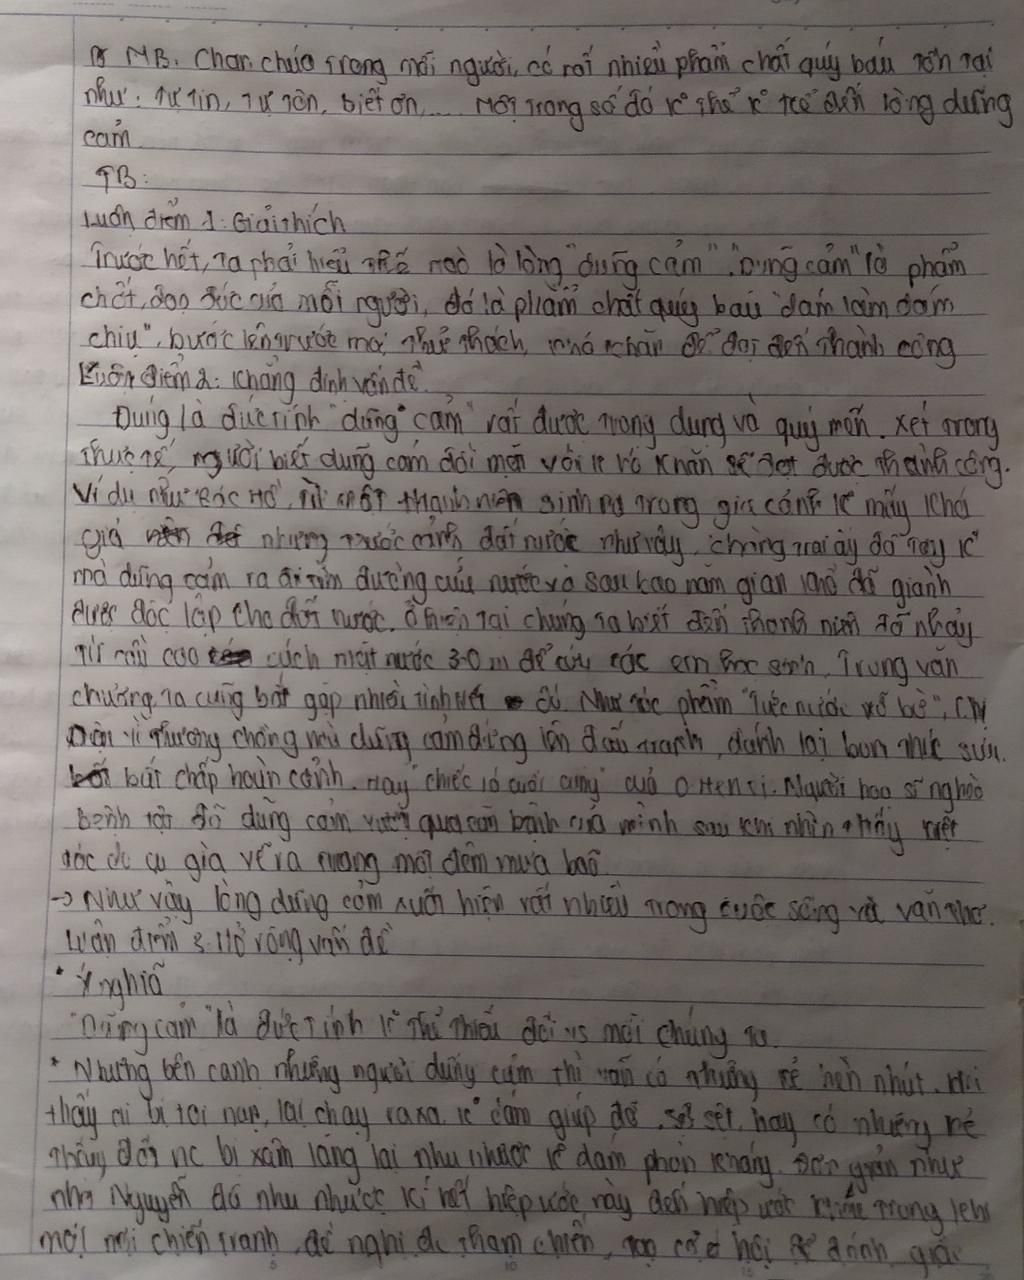 MB. Chan chứa trong mỗi người, có rất nhiều phẩm chất quý báu tồn tại
như: Tự tin, tự tôn, biết ơn,.... Một trong số đó k° thể k° kể đến lòng dũng
cảm
TB:
Luận điểm 1: Giải thích
Trước hết, ta phải hiểu thế nào là lòng "dũng cảm". "Dũng cảm" là phẩm
chất, đạo đức của mỗi người, đó là phẩm chất quý báu "dám làm dám
chịu", bước lên trước mọi thử thách, khó khăn để đạt đến thành công
Luận điểm 2: Khẳng định vấn đề.
Đúng là đức tính "dũng cảm" rất được trọng dụng và quý mến. Xét trong
thực tế, người biết dũng cảm đối mặt với khó khăn sẽ đạt được thành công.
Ví dụ như Bác Hồ, từ một thanh niên sinh ra trong gia cảnh k° mấy khá
giả nhưng trước cảnh đất nước như vậy, chàng trai ấy đã tay k°
mà dũng cảm ra đi tìm đường cứu nước và sau bao năm gian khổ đã giành
được độc lập cho đất nước. Ở hiện tại chúng ta biết đến thanh niên đã nhảy
từ cầu cao cách mặt nước 30m để cứu các em học sinh. Trong văn
chương, ta cũng bắt gặp nhiều tình tiết đó. Như tác phẩm "Tức nước vỡ bờ", Chị
Dậu vì thương chồng mà dũng cảm đứng lên đấu tranh, đánh lại bọn thúc sưu.
bất chấp hoàn cảnh. Hay "chiếc lá cuối cùng" của O Henri. Người họa sĩ nghèo
bệnh tật đã dũng cảm vượt qua căn bệnh của mình sau khi nhìn thấy kiệt
tác do cụ già vẽ ra trong một đêm mưa bão.
-> Như vậy lòng dũng cảm xuất hiện rất nhiều trong cuộc sống và văn thơ.
Luận điểm 3: Mở rộng vấn đề
* Ý nghĩa
"Dũng cảm" là đức tính k° thể thiếu đối vs mỗi chúng ta.
* Nhưng bên cạnh những người dũng cảm thì vẫn có những kẻ hèn nhút. Khi
thấy ai bị tai nạn, lại chạy ra xa k° dám giúp đỡ, sợ sệt, hay có những kẻ
thấy đất nc bị xâm lăng lại nhu nhược k° dám phản kháng. Đơn giản như
nhà Nguyễn đã nhu nhược kí hết hiệp ước này đến hiệp ước khác trong khi
mọi nơi chiến tranh, đề nghị đc tham chiến, tạo cơ hội để đánh giặc